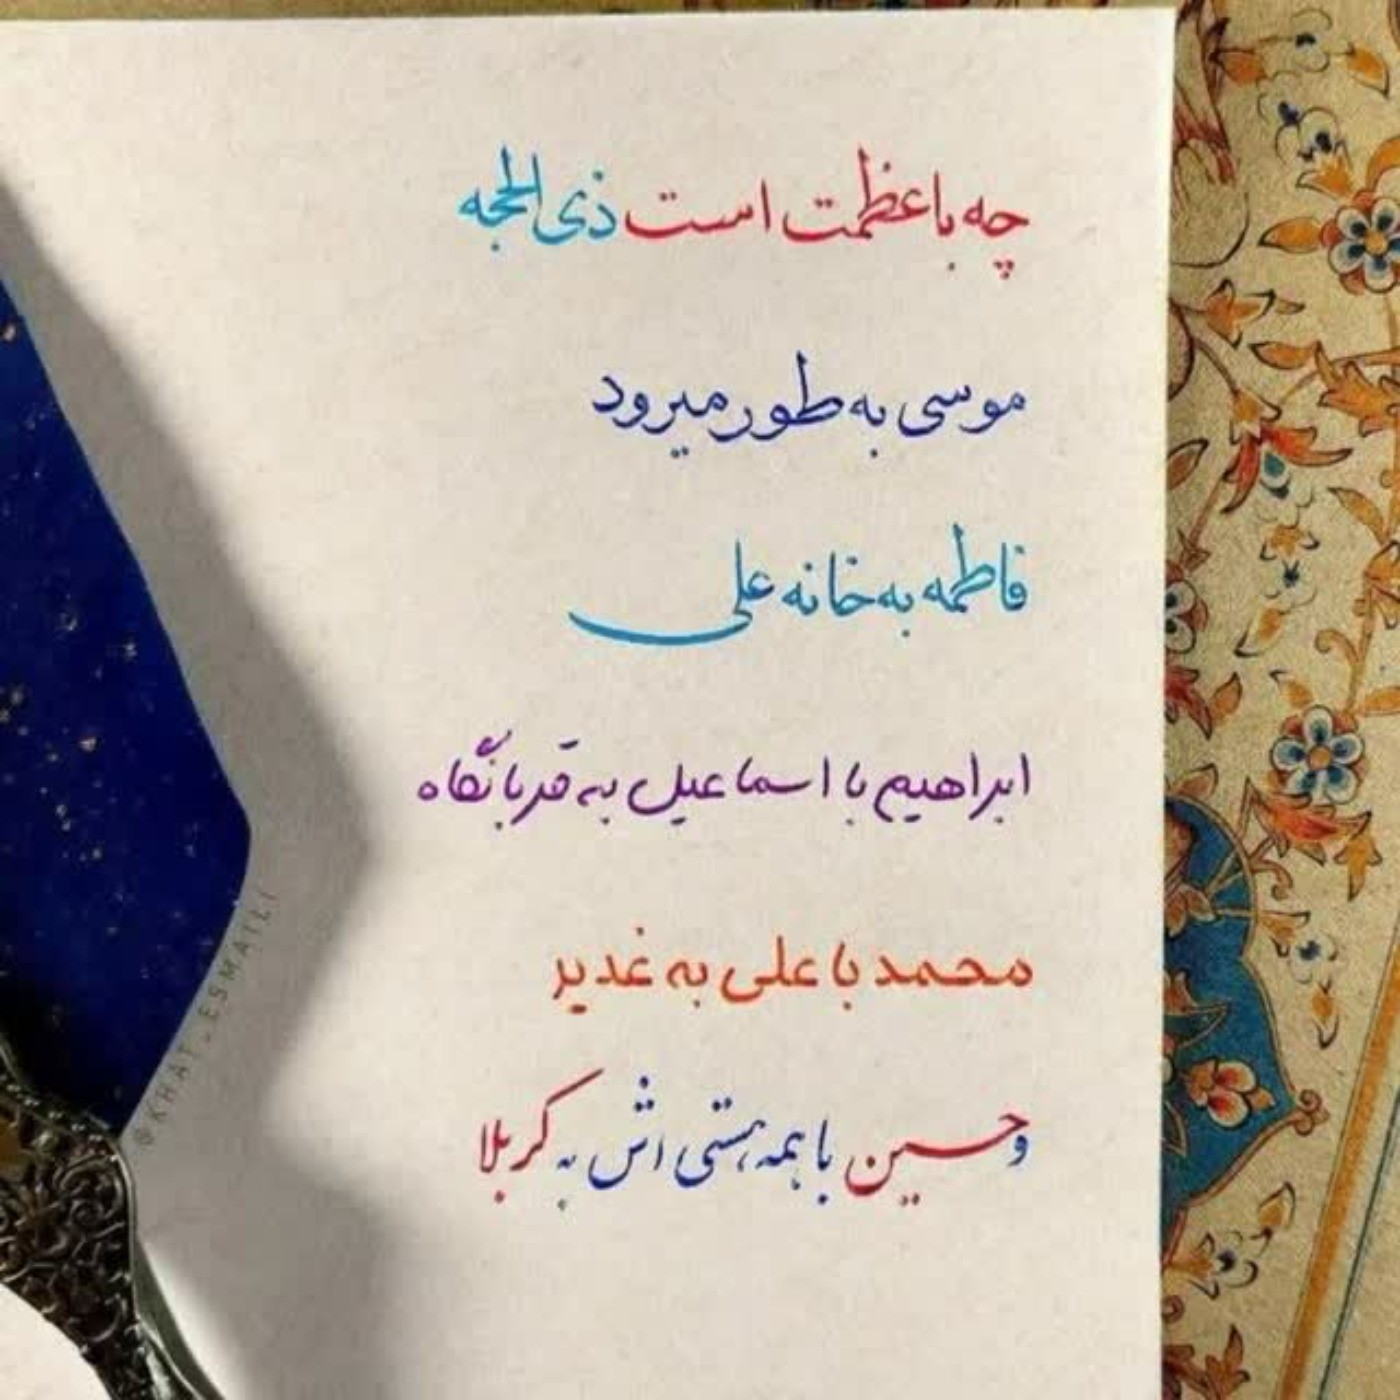 چه با عظمت است ذی الحجه
موسی به طور میرود
فاطمه به خانه علی
ابراهیم با اسماعیل به قربانگاه
محمد با علی به غدیر
و حسین با همه هستی اش به کربلا
@KHAT_ESMAILI